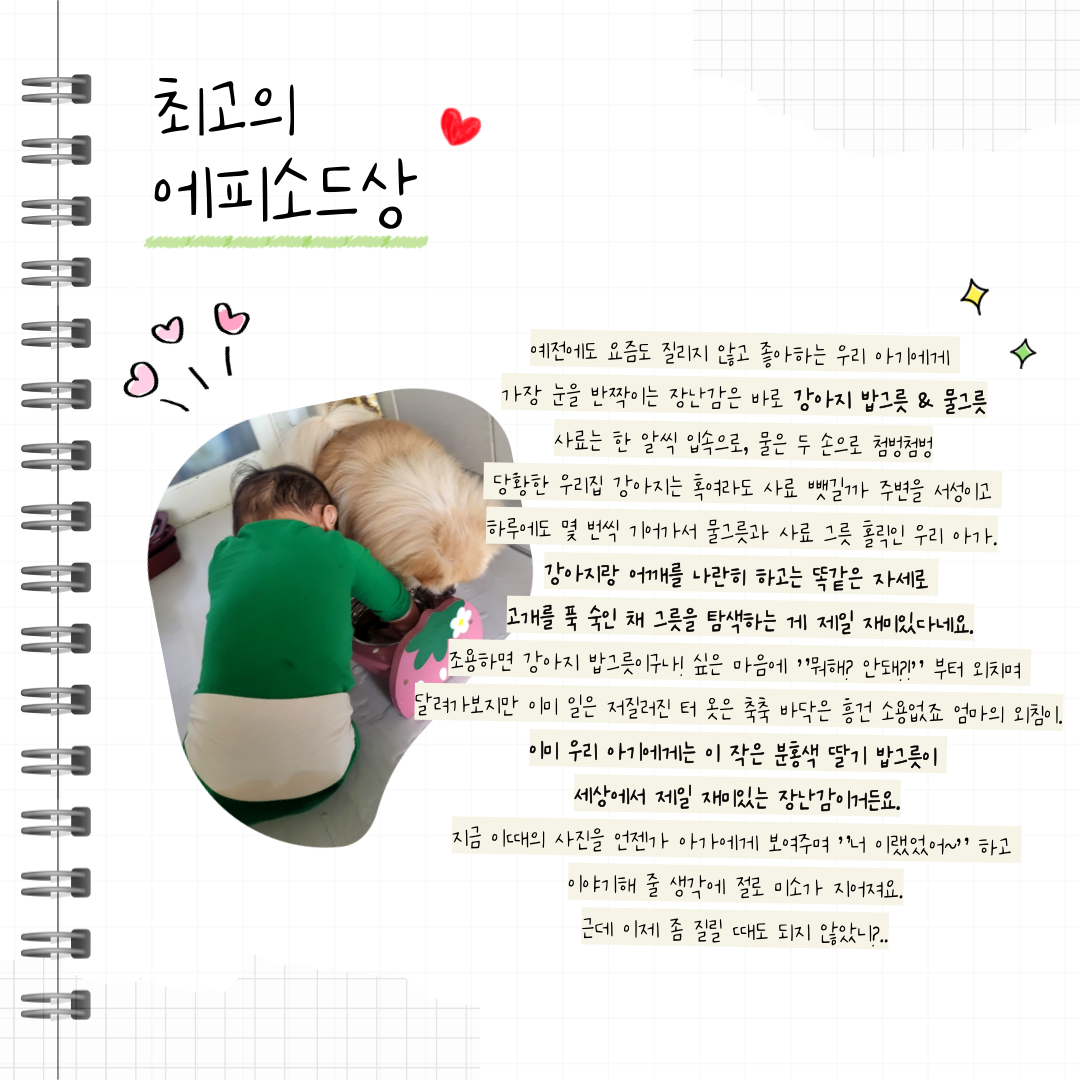 최고의
에피소드상
예전에도 요즘도 질리지 않고 좋아하는 우리 아기에게
가장 눈을 반짝이는 장난감은 바로 강아지 밥그릇 & 물그릇
사료는 한 알씩 입속으로, 물은 두 손으로 첨벙첨벙
당황한 우리집 강아지는 혹여라도 사료 뺏길까 주변을 서성이고
하루에도 몇 번씩 기어가서 물그릇과 사료 그릇 홀릭인 우리 아가.
강아지랑 어깨를 나란히 하고는 똑같은 자세로
고개를 푹 숙인 채 그릇을 탐색하는 게 제일 재미있다네요.
조용하면 강아지 밥그릇이구나! 싶은 마음에 "뭐해? 안돼?!" 부터 외치며
달려가보지만 이미 일은 저질러진 터 옷은 축축 바닥은 흥건 소용없죠 엄마의 외침이.
이미 우리 아기에게는 이 작은 분홍색 딸기 밥그릇이
세상에서 제일 재미있는 장난감이거든요.
지금 이때의 사진을 언젠가 아가에게 보여주며 "너 이랬었어~" 하고
이야기해 줄 생각에 절로 미소가 지어져요.
근데 이제 좀 질릴 때도 되지 않았니?..